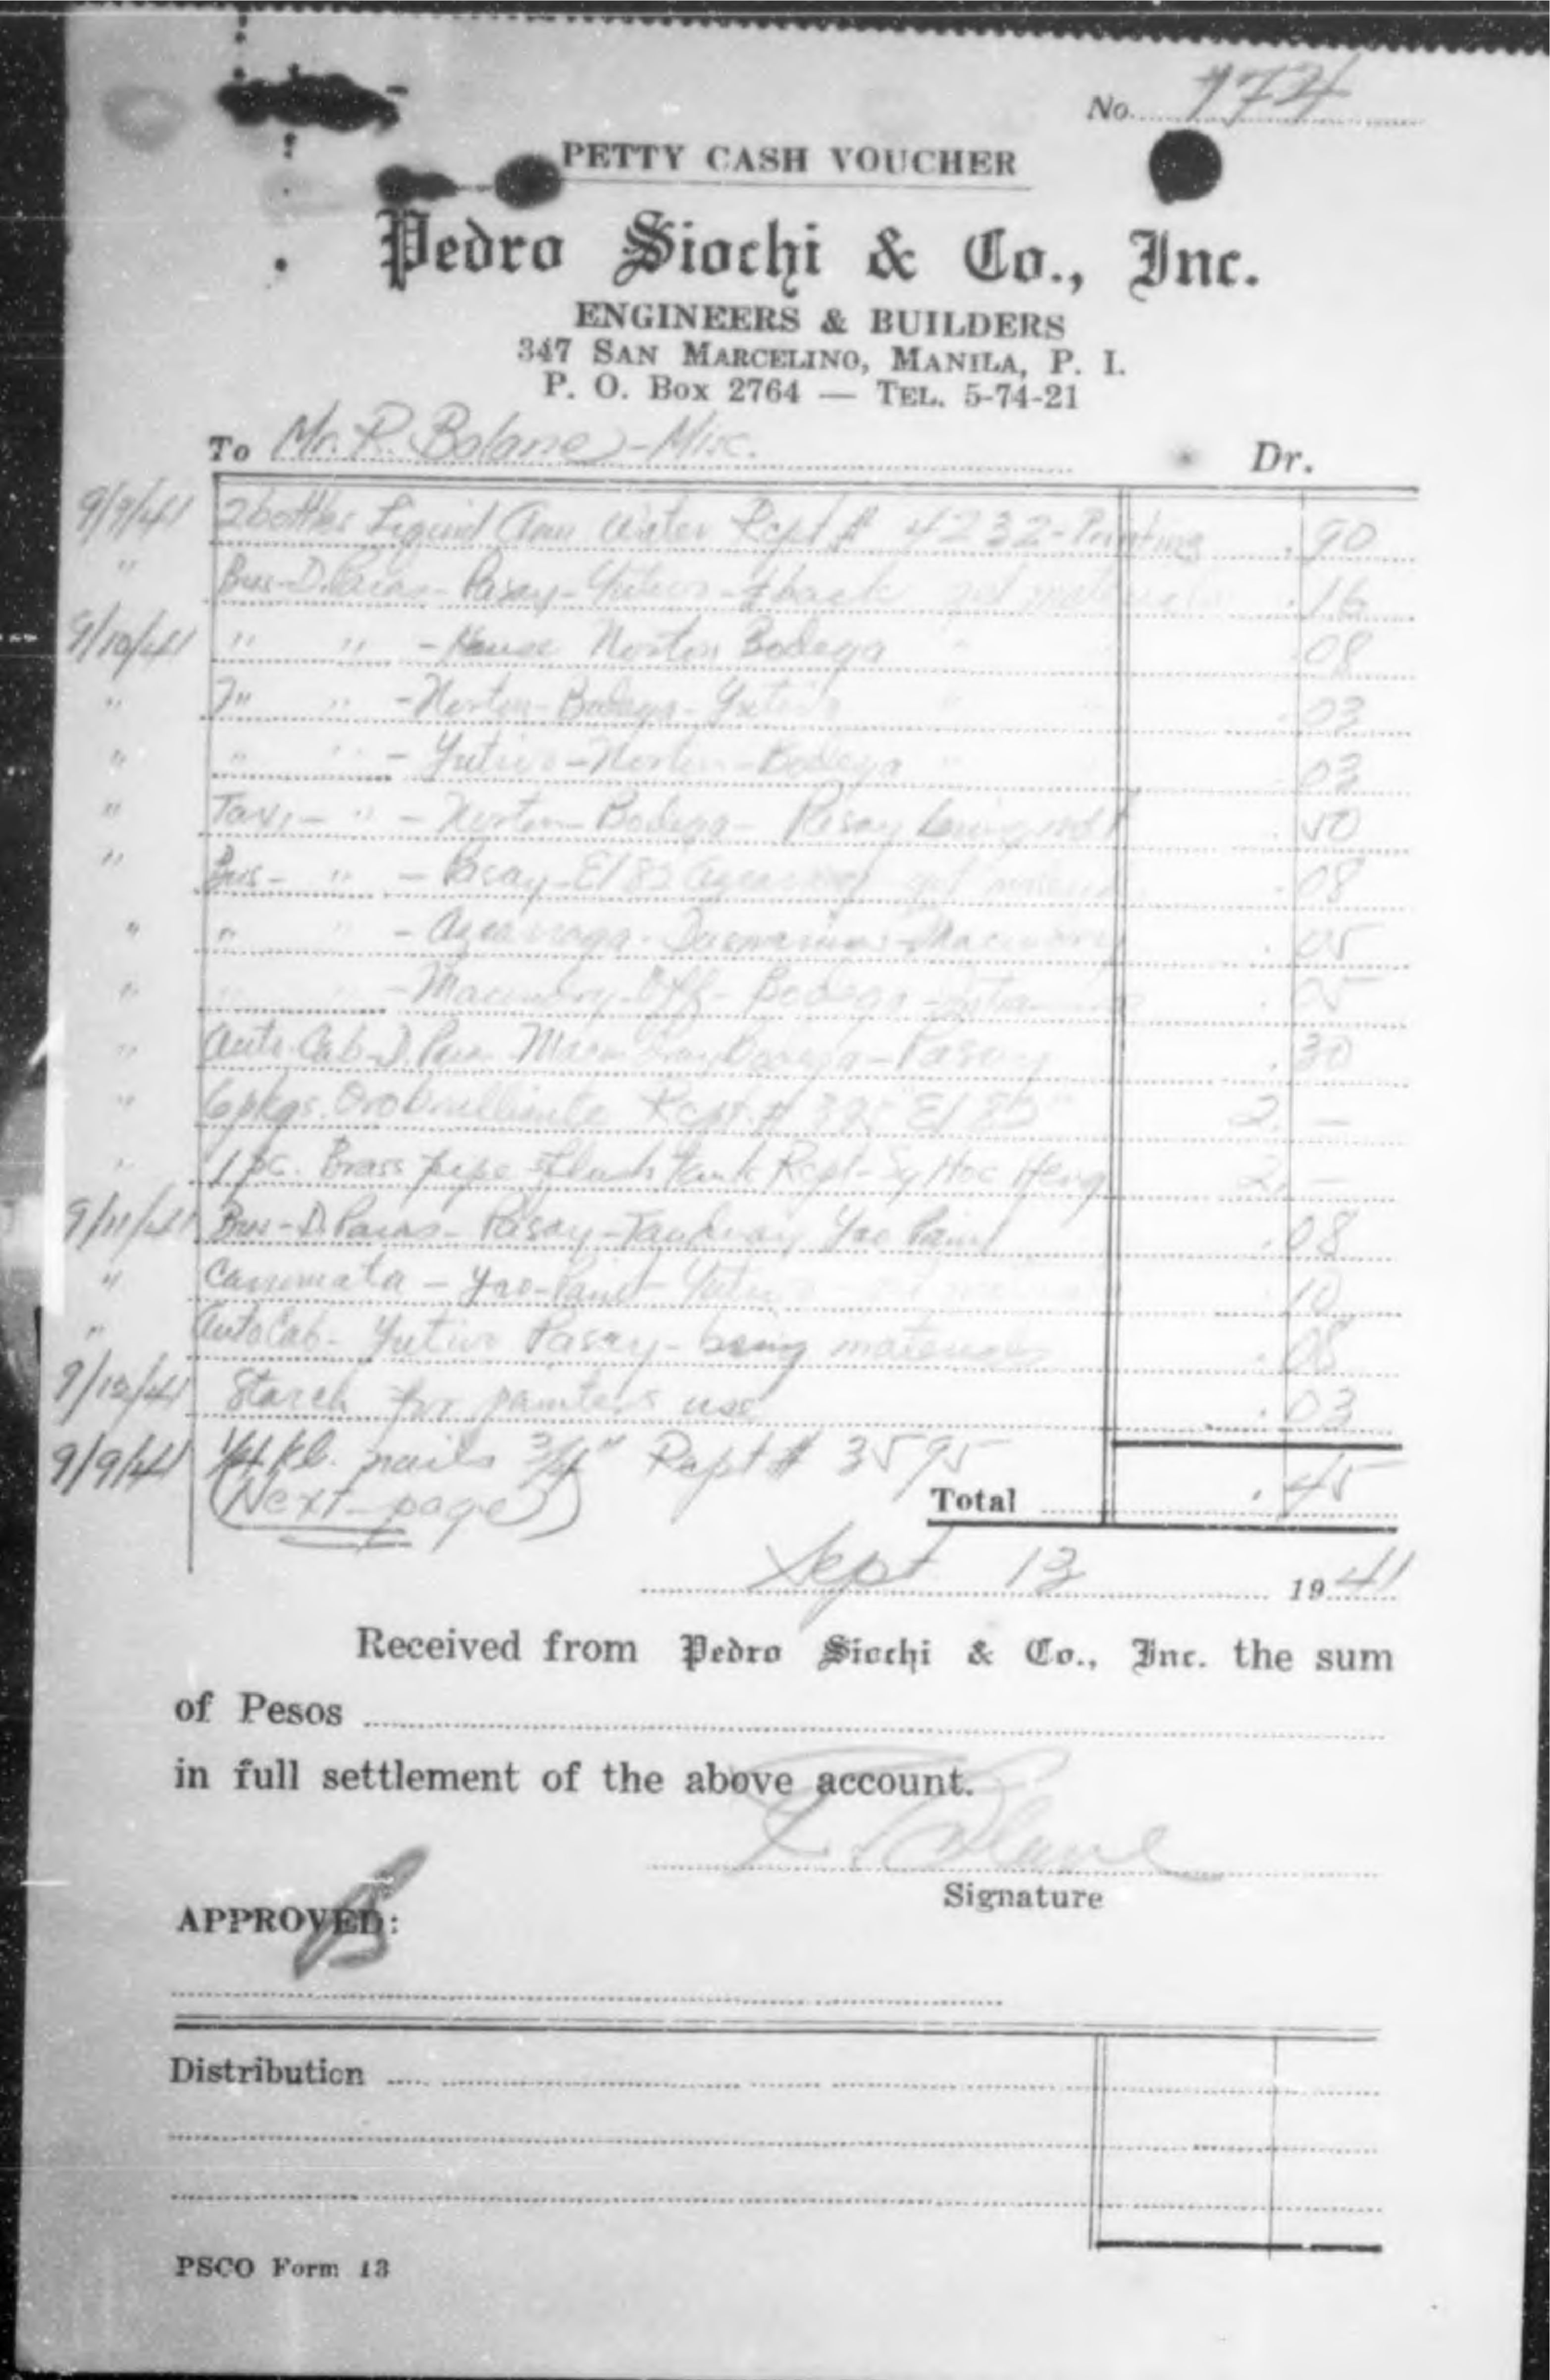 No. 174
PETTY CASH VOUCHER
Pedro Siochi & Co., Inc.
ENGINEERS & BUILDERS
347 SAN MARCELINO, MANILA, P. I.
P. O. Box 2764 — TEL. 5-74-21
To Mr. R. Balane - Misc. Dr.
9/9/41 2 bottles Liquid Water Rcpt # 4232 - Painting .90
" Bus - D. Paras - Pasay - Yutivo - & back .16
9/10/41 " " - House Norton Bodega " .08
" " " - Norton - Bodega - Yutivo .03
" " " - Yutivo - Norton - Bodega " .03
" Taxi - " - Norton - Bodega - Pasay .50
" Bus - " - Pasay - El 82 .08
" " " - Azcarraga - Dasmarinas - .05
" " " - - Off - Bodega - .05
" Auto Cab - D. Paras - Pasay .30
" 6 pkgs. Orobrillante Rcpt. # 325 El 82 2. —
" 1 pc. Brass pipe flush tank Rcpt - Sy Hoc Heng 2. —
9/11/41 Bus - D. Paras - Pasay - Tanduay Yao Paint .08
" Carromata - Yao - Paint - Yutivo .10
" Auto Cab - Yutivo Pasay - bring materials .08
9/12/41 Starch for painters use .03
9/9/41 1/4 kl. nails 3/4" Rcpt # 3595
(Next page) Total .45
Sept 13 1941
Received from Pedro Siochi & Co., Inc. the sum
of Pesos
in full settlement of the above account.
R. Balane
Signature
APPROVED:
Distribution
PSCO Form 13